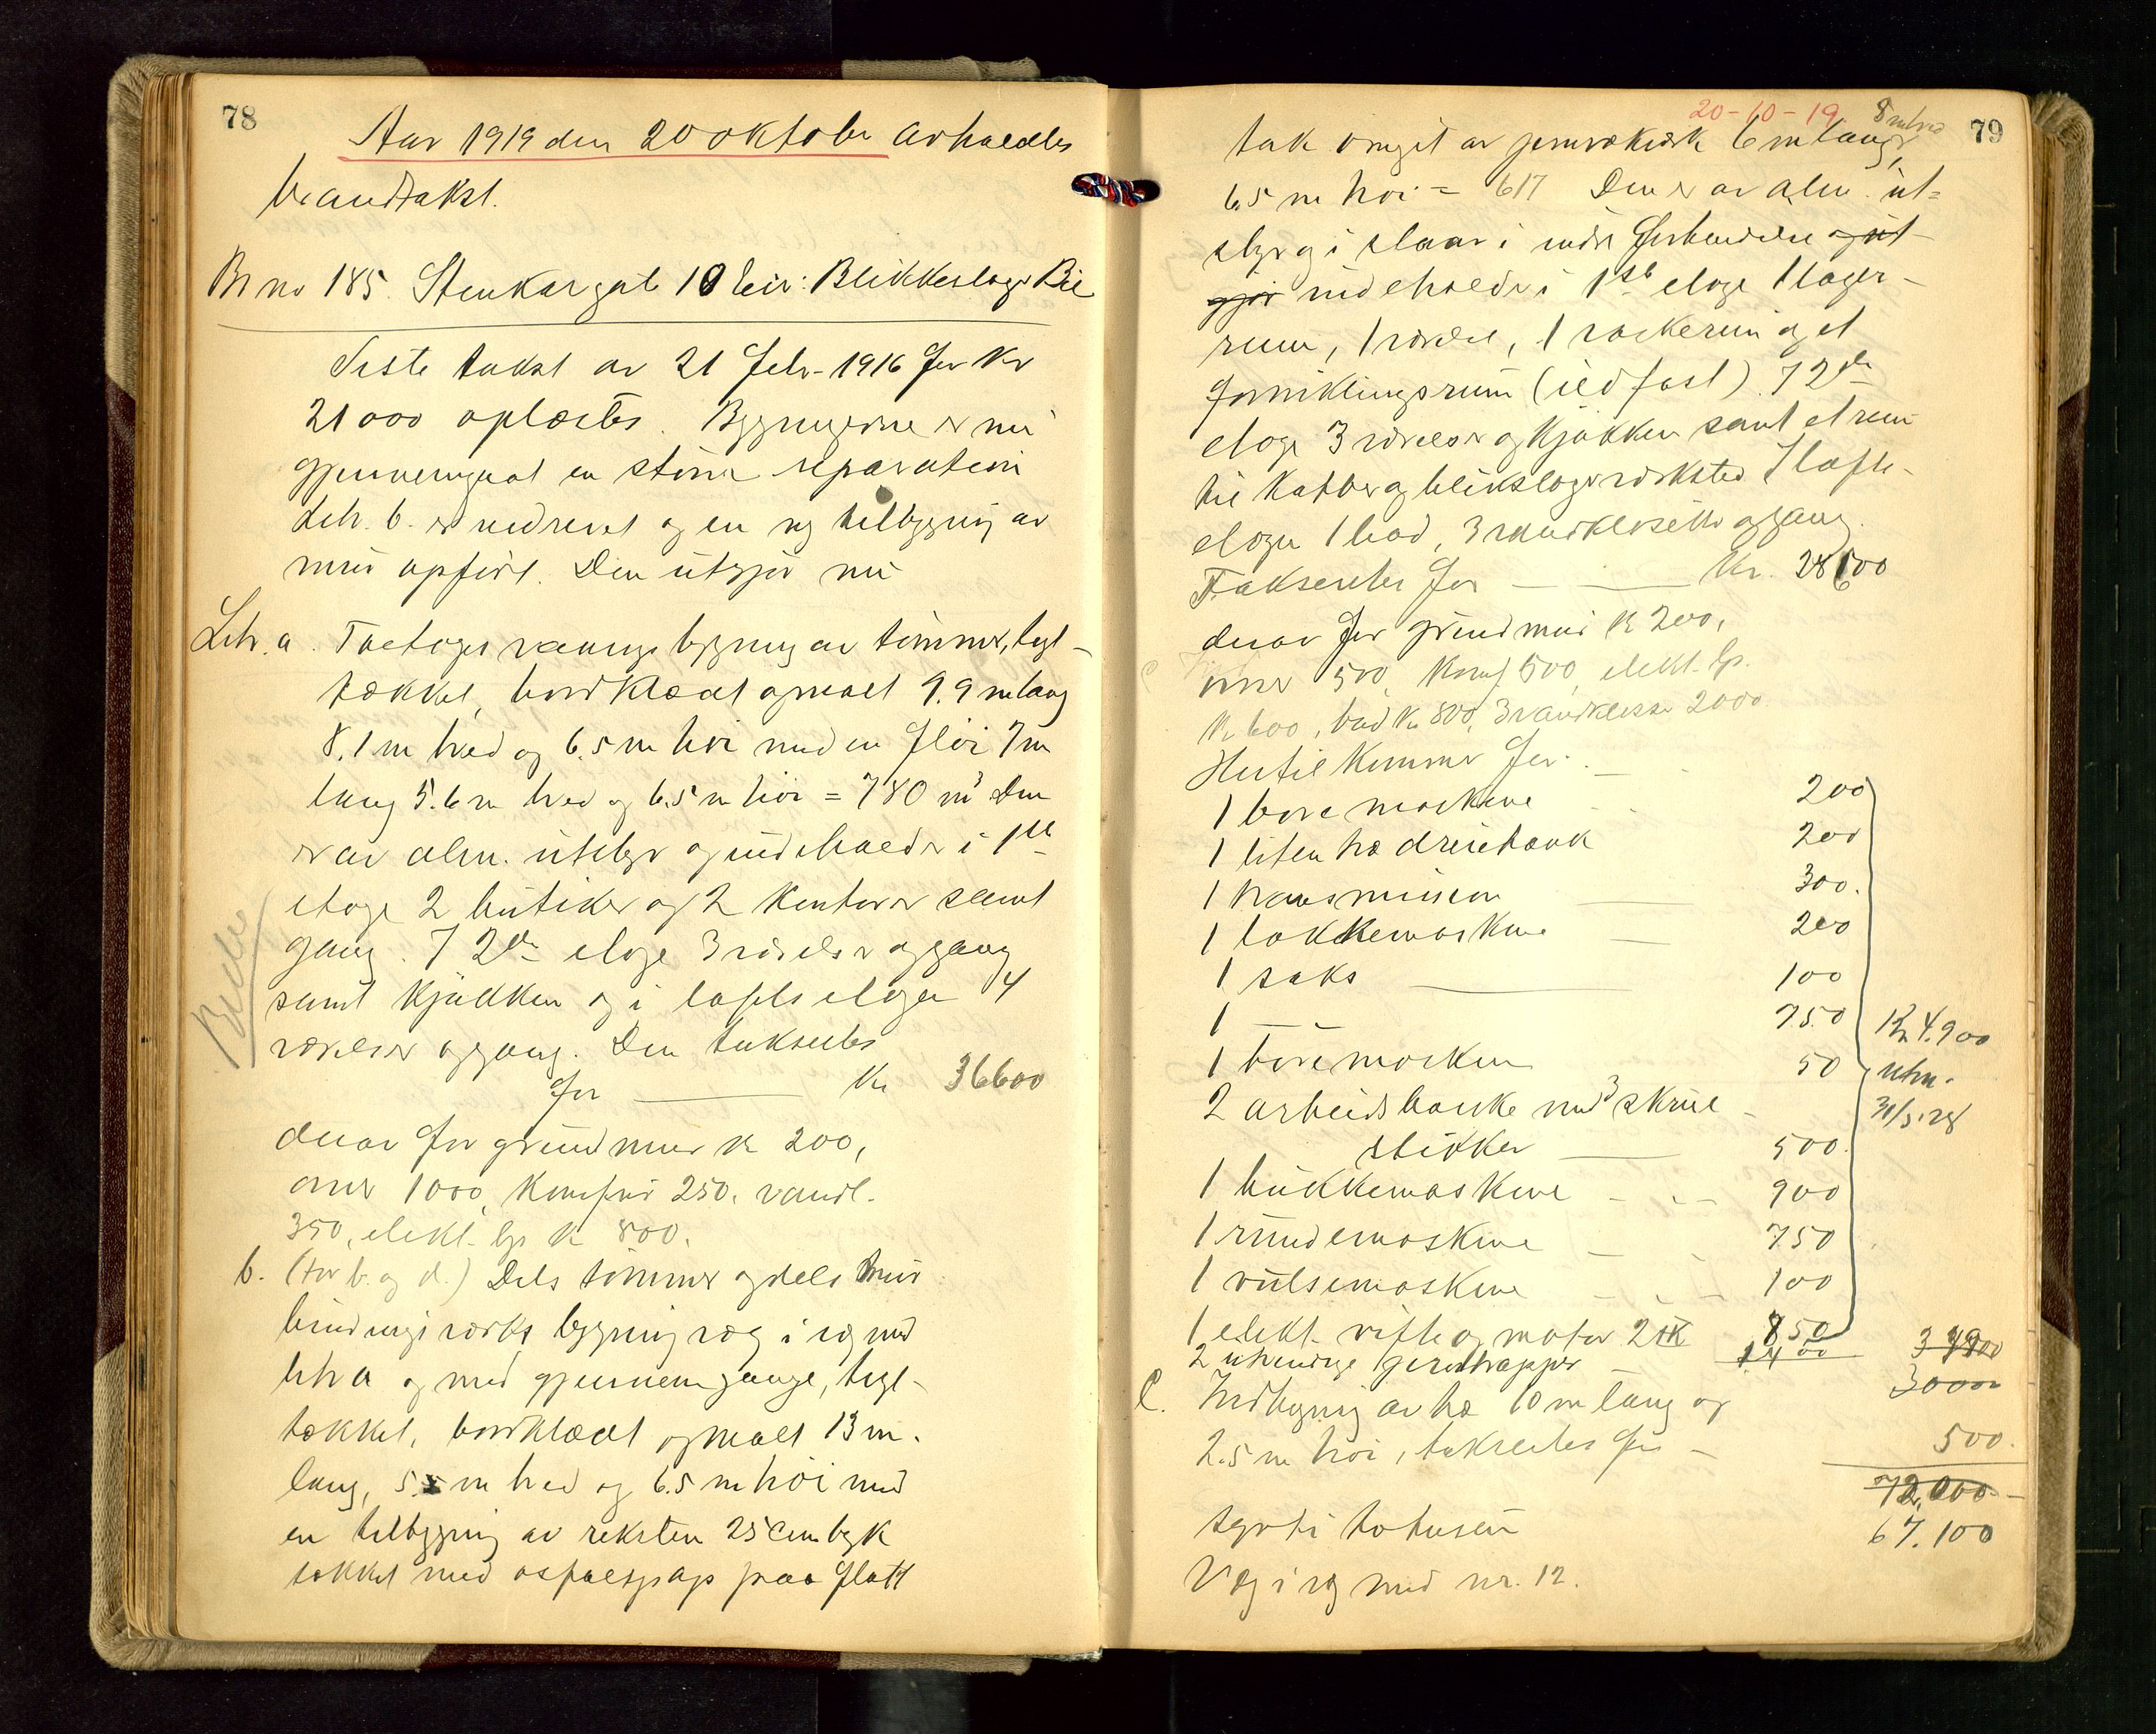 78
Aar 1919 den 20 oktober avholdtes
brandtakst.
Br no 185. Stenkargt 10 teir: Blikkeslager Bie
Siste takst av 21 febr. 1916 for Kr
21000 oplæstes. Bygningerne er nu
gjennemgaat en större reparation
Litr. b. er nedrevet og en ny tilbygning av
mur opfört. Den utgjör nu
Litr. a. Toetages vaanings bygning av tömmer, tegl-
tækket, bordklædt og malt 9.9 m lang
8.1 m bred og 6.5 m höi med en flöi 7 m
lang 5.6 m bred og 6.5 m höi = 780 m³ Den
er av alm. utstyr og indeholder i 1ste
etage 2 butiker og 2 kontorer samt
gang. I 2den etage 3 værelser og gang
samt kjökken og i loftsetagen 4
værelser og gang. Den takseres
for Kr 36600
derav for grundmur kr 200,
ovner 1000, komfur 250, vandl.
350, elekt. lys kr 800.
b. (för b. og d.) Dels tömmer og dels mur
bindings verks bygning væg i væg med
litr a og med gjennemgange, tegl-
tækket, bordklædt og malt 13 m.
lang, 5.5 m bred og 6.5 m höi med
en tilbygning av seksten 25 cm tyk
tækket med asfaltpap paa flatt
20-10-19
79
8 m bred
tak omgit av jernrækverk 6 m lang,
6.5 m höi = 617 Den er av alm. ut-
styr og i staar i indre forbindelse og ut-
gjör indeholder i 1ste etage 1 lager-
rum, 1 værelse, 1 rum og et
forniklingsrum (ildfast). I 2den
etage 3 værelser og kjökken samt et rum
til kobber og blikslagerverksted I lofts-
etagen 1 bad, 3 vandklosetter og gang.
Takseres for Kr. 28600
derav for grundmur kr 200,
ovner 500, komf 500, elekt. lys.
kr 600, bad kr 800, 3 vandkloset 2000.
Hertil kommer for:
1 boremaskine 200
1 liten træ dreiebænk 200
1 transmission 300.
1 lokkemaskine 200
1 saks 100
1 750
1 boremaskine 50
2 arbeidsbænke med 3 skrue
stikker 500.
1 bukkemaskine 900
1 rundemaskine 750
1 vulsemaskine 100
1 elekt. vifte og motor 2 850
Kr 4.900
utm.
31/5.28
2 utvendige jerntrapper 1400 3 4900
30000
C. Indbygning av træ 10 m lang og
2.5 m höi, takseres for 500.
72,000
sytti totusen 67.100
Væg i væg med nr. 12.
Bilde